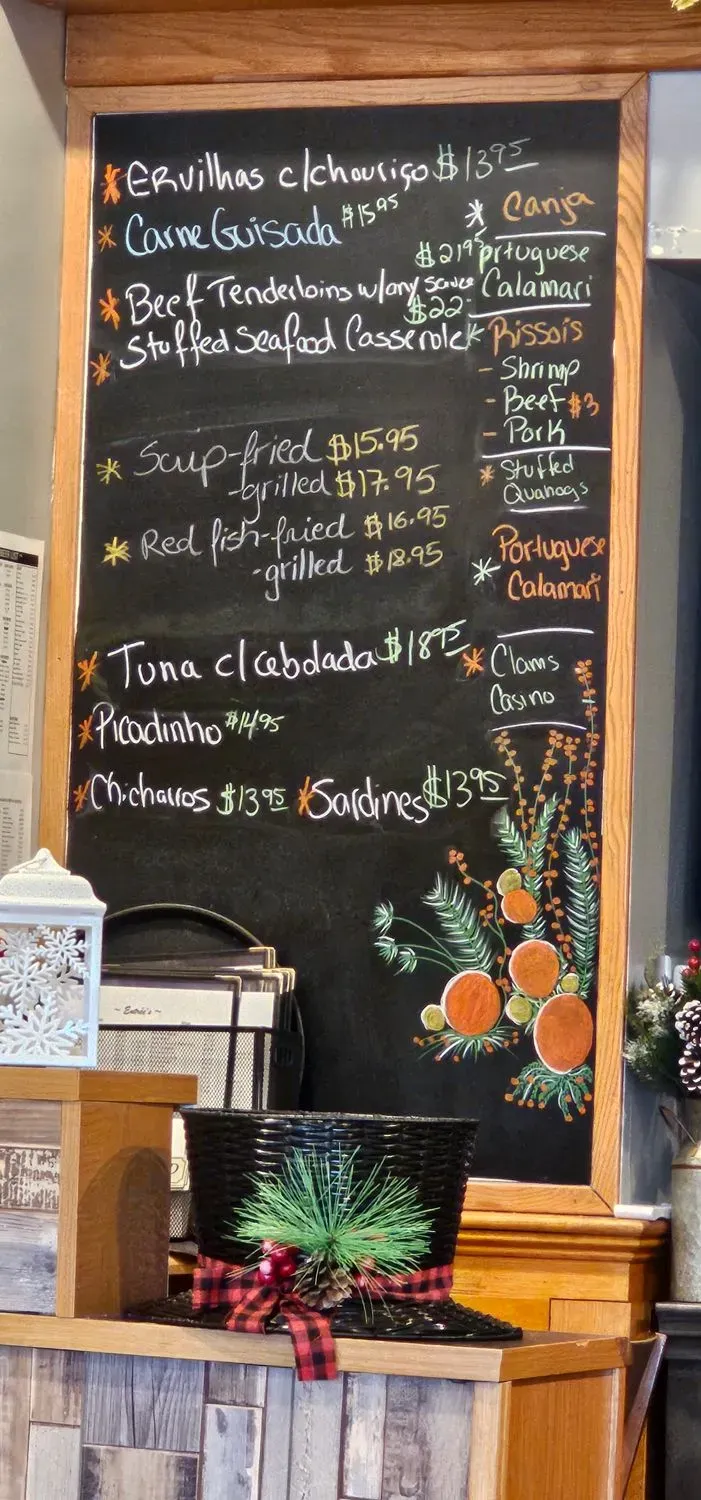 Ervilhas c/chouriço $13.95
Carne Guisada $15.95
$21.95
Beef Tenderloins w/any sauce
$22-
Stuffed Seafood Casserole
Scup-fried $15.95
-grilled $17.95
Red fish-fried $16.95
-grilled $18.95
Tuna c/cebolada $18.75
Picadinho $14.95
Chicharros $13.95 Sardines $13.95
Canja
Prtuguese
Calamari
Rissois
- Shrimp
- Beef $3
- Pork
Stuffed
Quahogs
Portuguese
Calamari
Clams
Casino
~ Entrée's ~